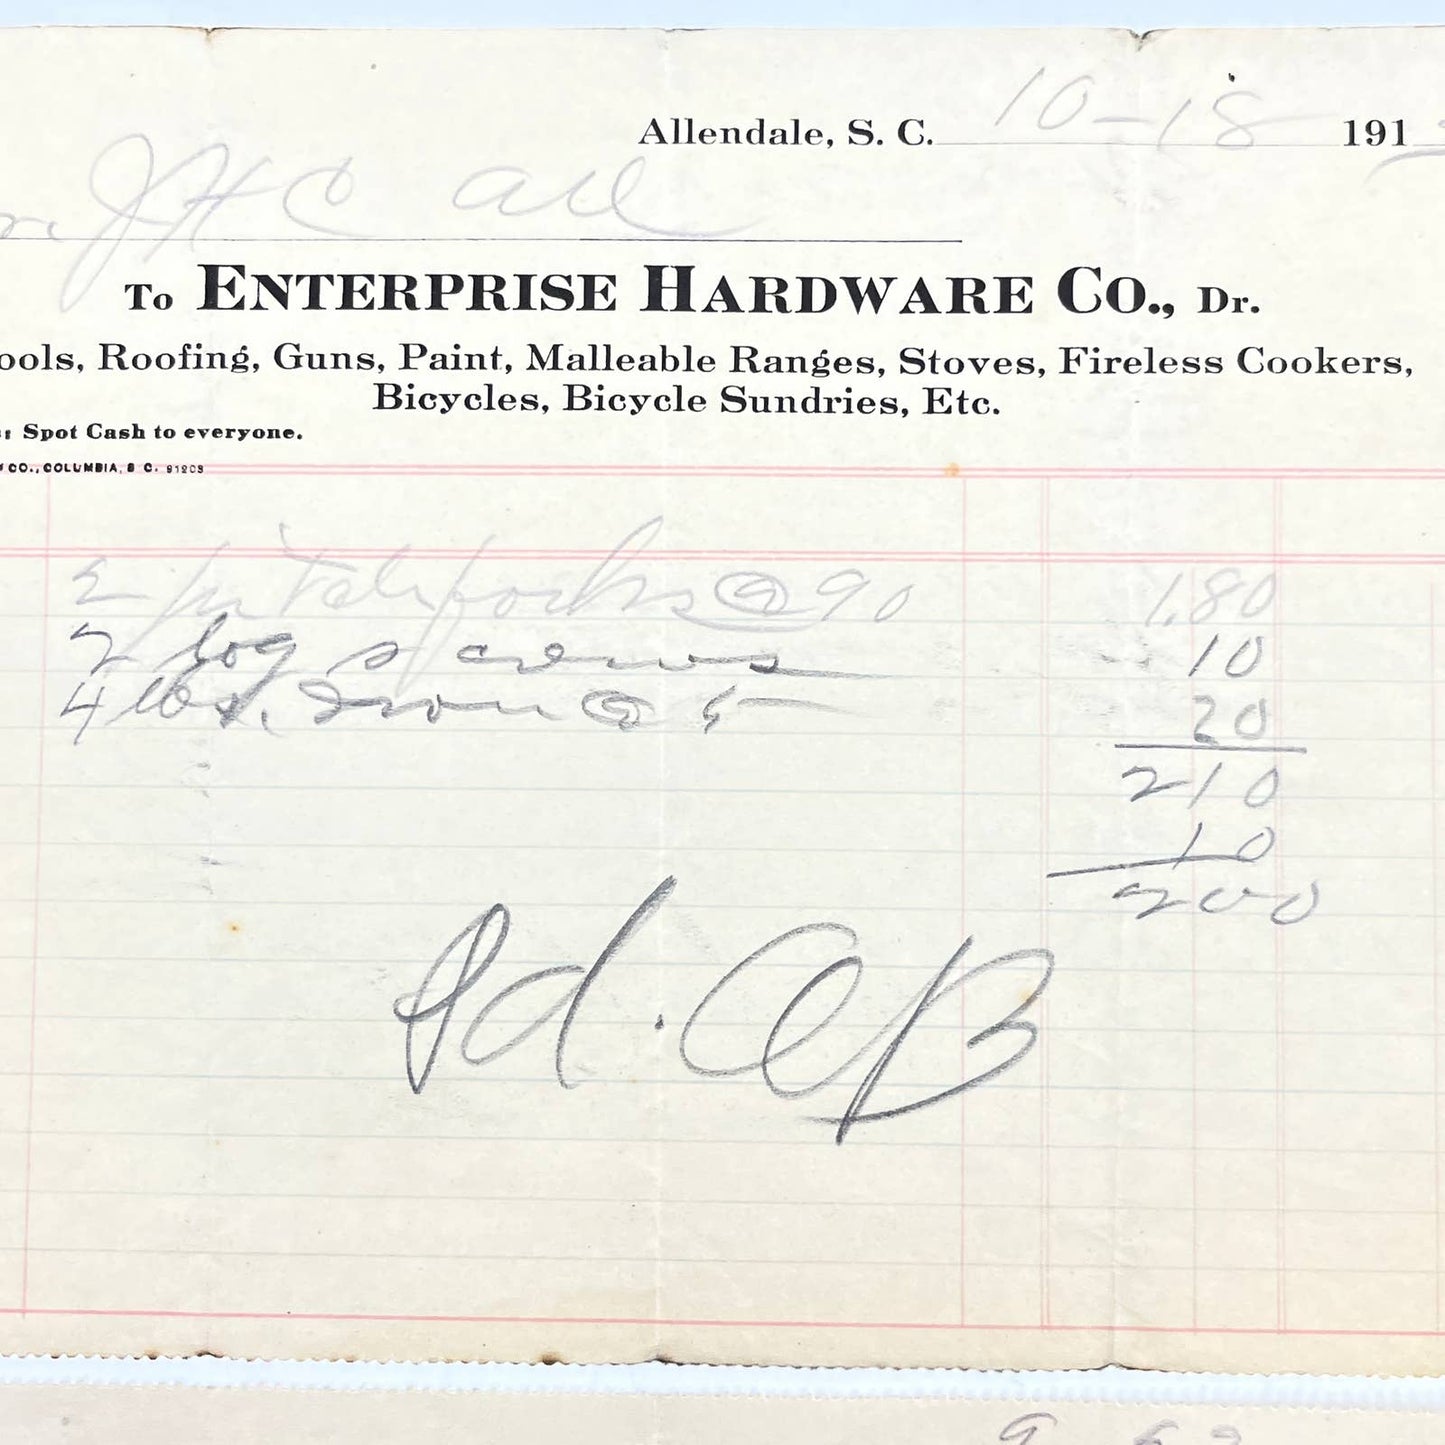 Allendale, S. C. 10-18 191
J H C All
To ENTERPRISE HARDWARE CO., Dr.
ools, Roofing, Guns, Paint, Malleable Ranges, Stoves, Fireless Cookers,
Bicycles, Bicycle Sundries, Etc.
: Spot Cash to everyone.
CO., COLUMBIA, S C. 91203
2 pitchforks @ 90 1.80
2 log screws 10
4 lbs. Iron @ 5 20
210
10
200
Pd. AB